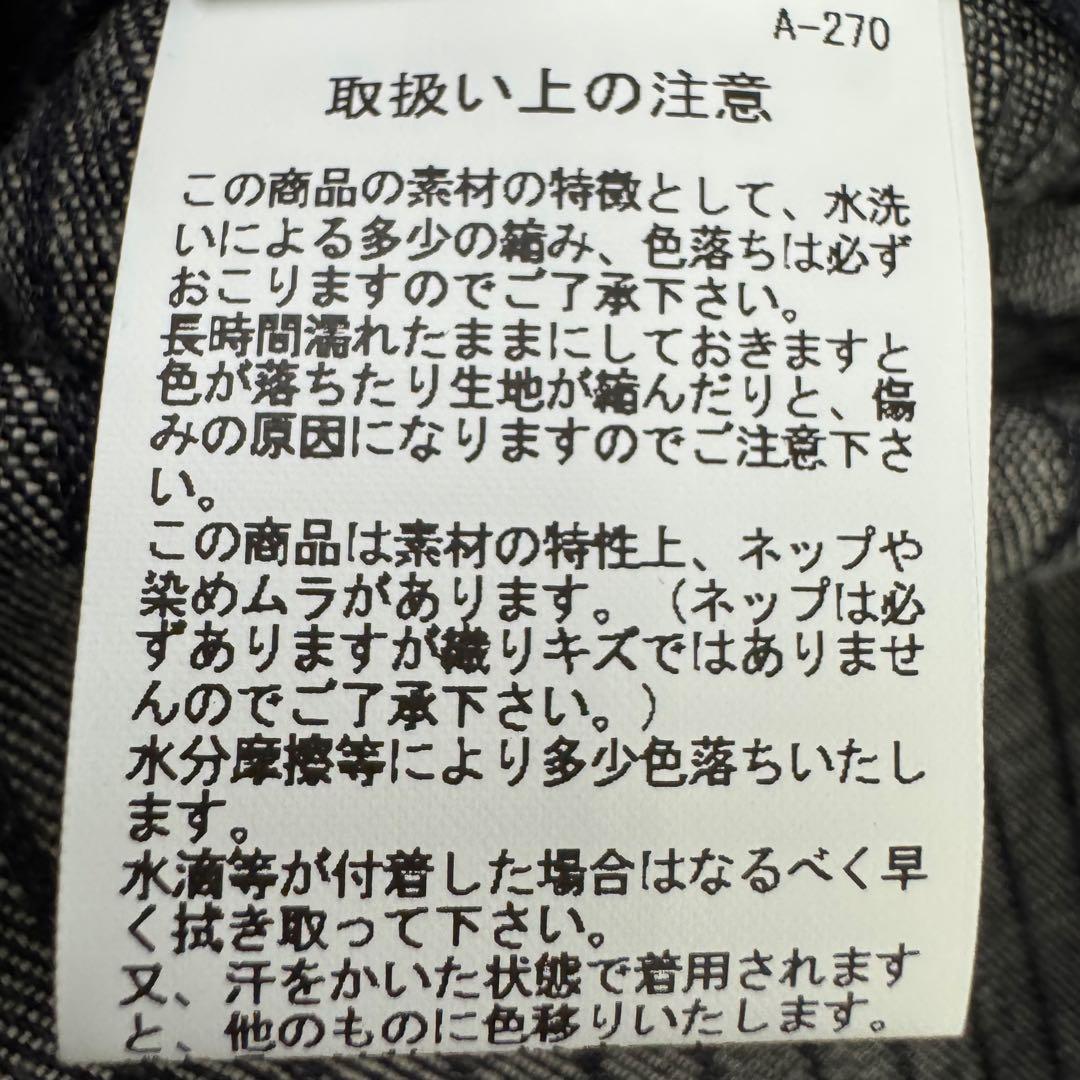 A-270
取扱い上の注意
この商品の素材の特徴として、水洗
いによる多少の縮み、色落ちは必ず
おこりますのでご了承下さい。
長時間濡れたままにしておきますと
色が落ちたり生地が縮んだりと、傷
みの原因になりますのでご注意下さ
い。
この商品は素材の特性上、ネップや
染めムラがあります。（ネップは必
ずありますが織りキズではありませ
んのでご了承下さい。）
水分摩擦等により多少色落ちいたし
ます。
水滴等が付着した場合はなるべく早
く拭き取って下さい。
又、汗をかいた状態で着用されます
と、他のものに色移りいたします。